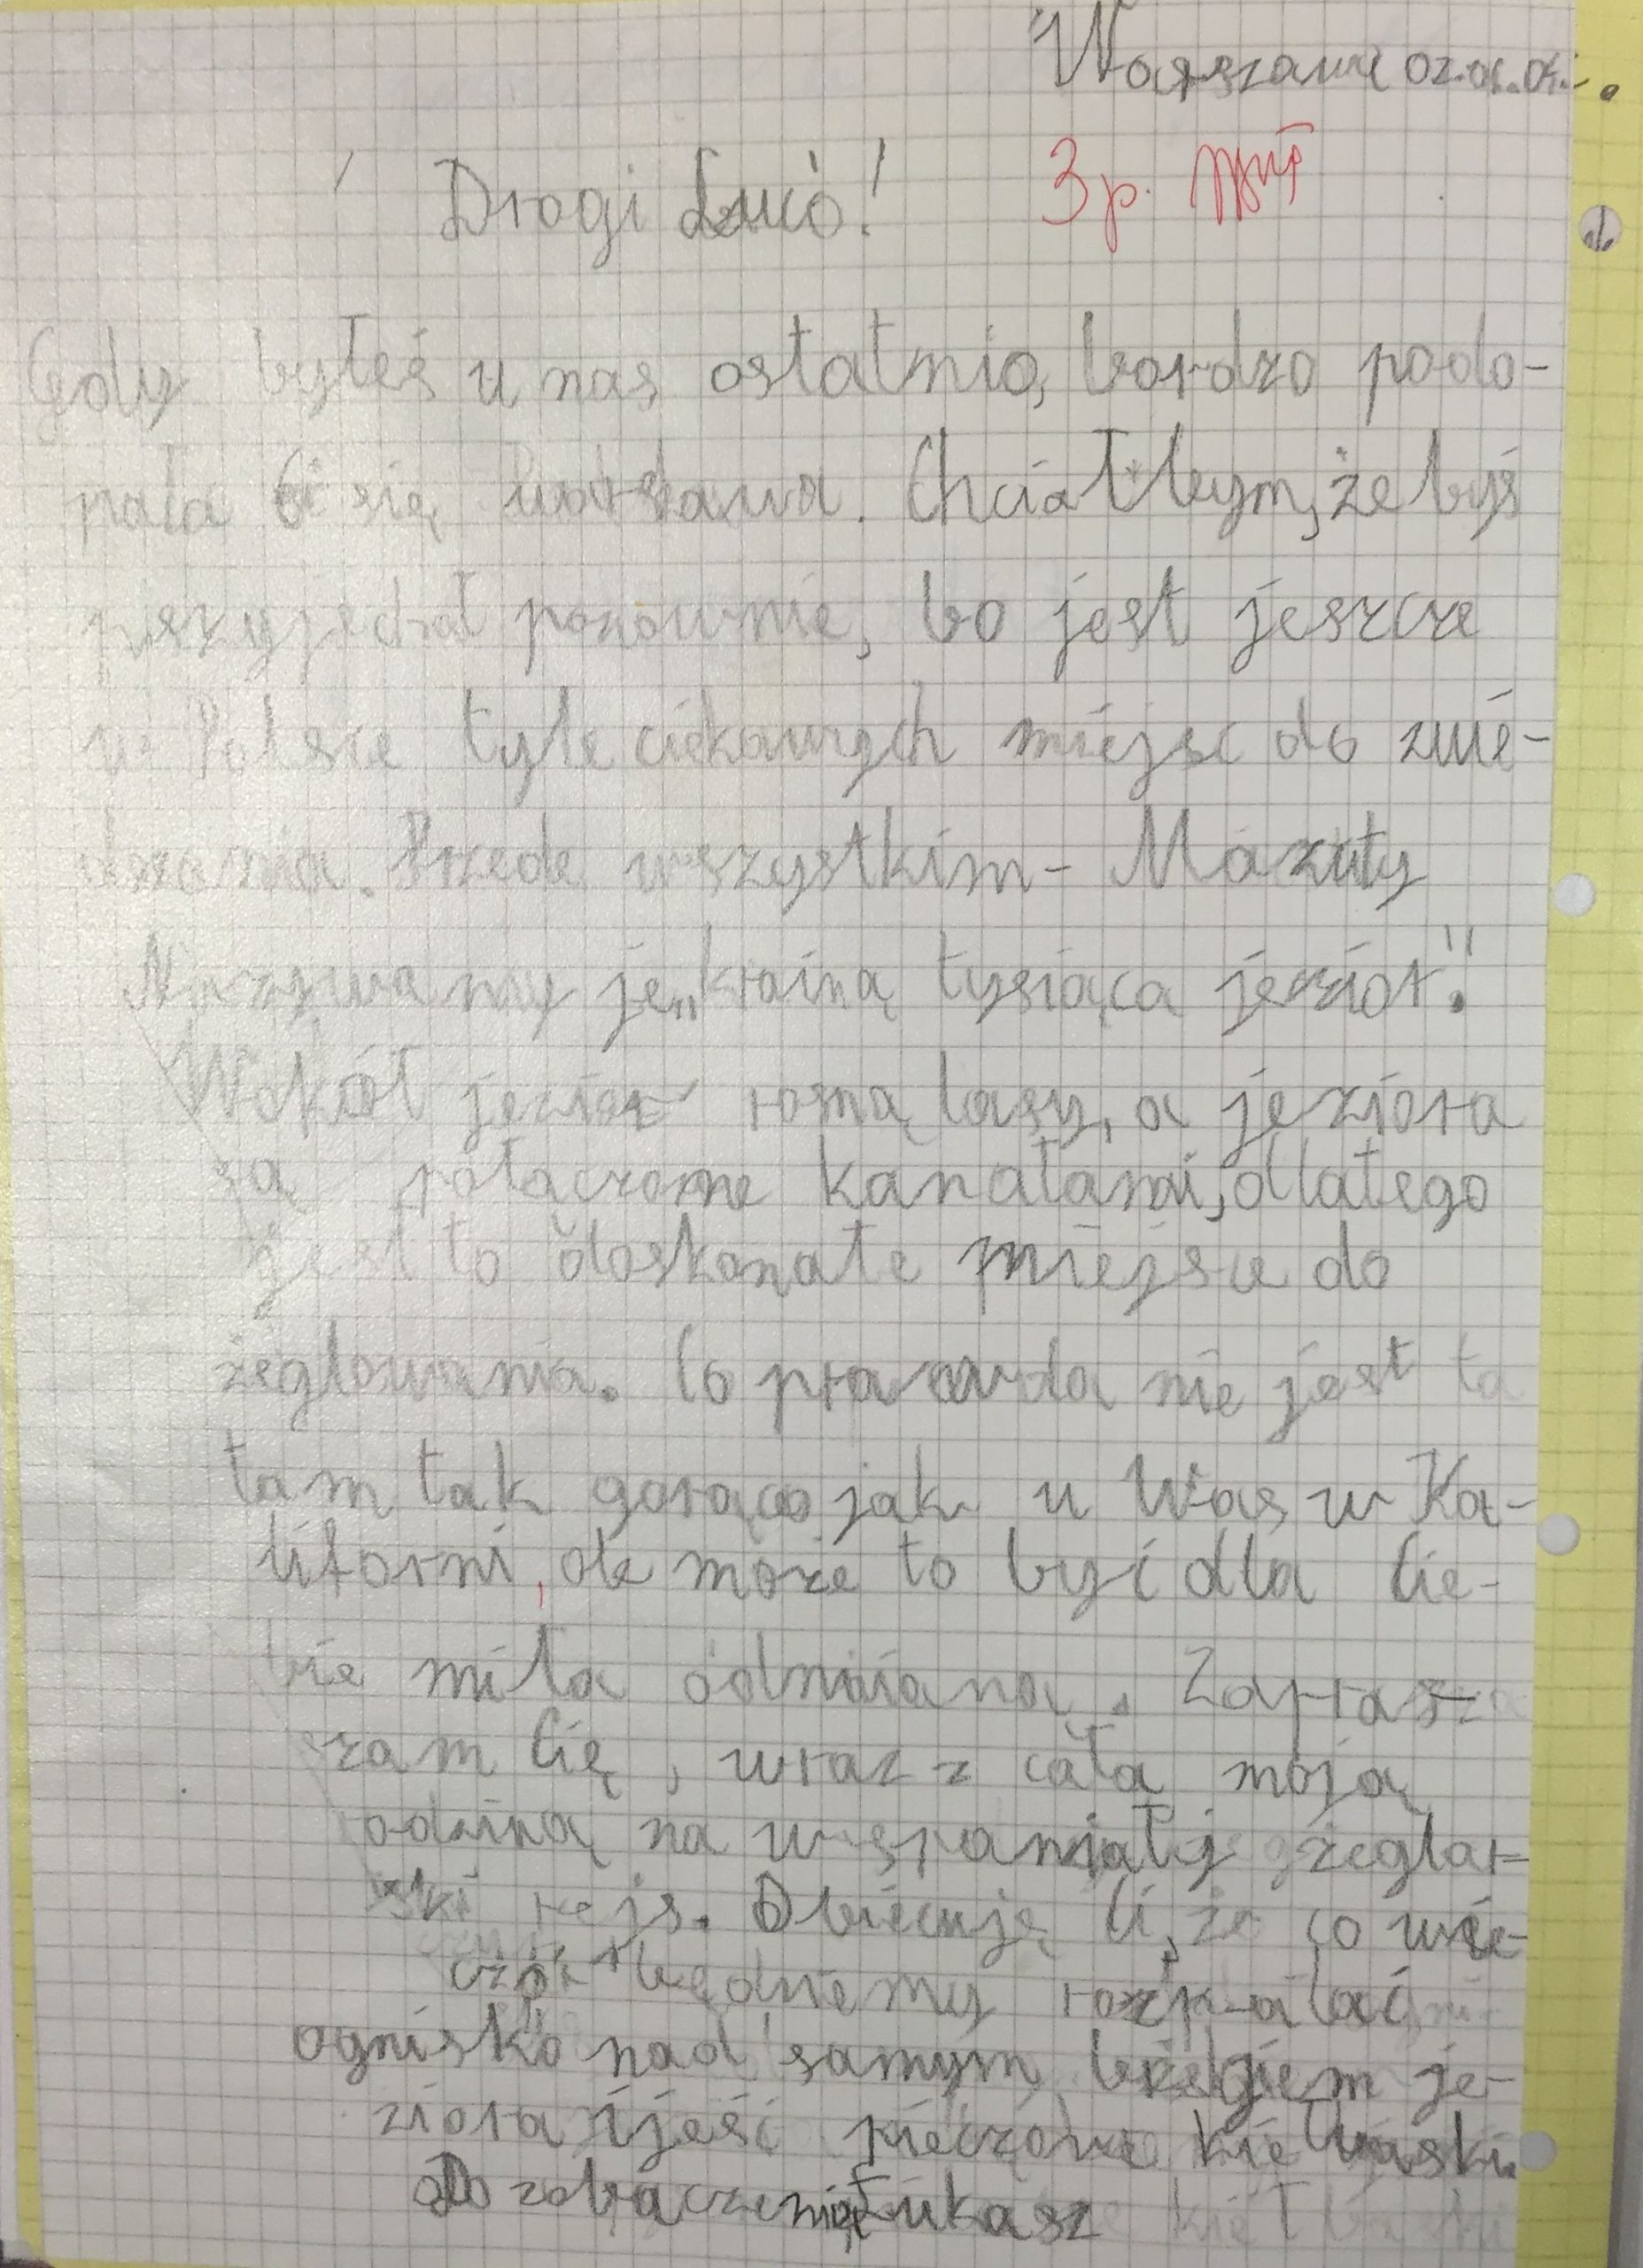 Warszawa 02.01.04.
Drogi
3p.
Gdy byłeś u nas ostatnio, bardzo podo-
pała Ci się warszawa. Chciałbym, żebyś
przyjechał ponownie, bo jest jeszcze
w Polsce tyle ciekawych miejsc do zwie-
dzania. Przede wszystkim - Mazury
Nazywamy je „krainą tysiąca jezior".
Wokół jezior rosną lasy, a jeziora
są połączone kanałami, dlatego
jest to doskonałe miejsce do
żeglowania. Co prawda nie jest
tam tak gorąco jak u Was w Ka-
liforni, ale może to być dla Cie-
bie miła odmiana. Zaprasz
zam Cię, wraz z cała moją
rodziną na wspaniały żeglar-
ski rejs. Obiecuję Ci, że co wie-
czór będziemy rozpalać
ognisko nad samym brzegiem je-
ziora i jeść pieczone kiełbaski.
Do zobaczenia Łukasz